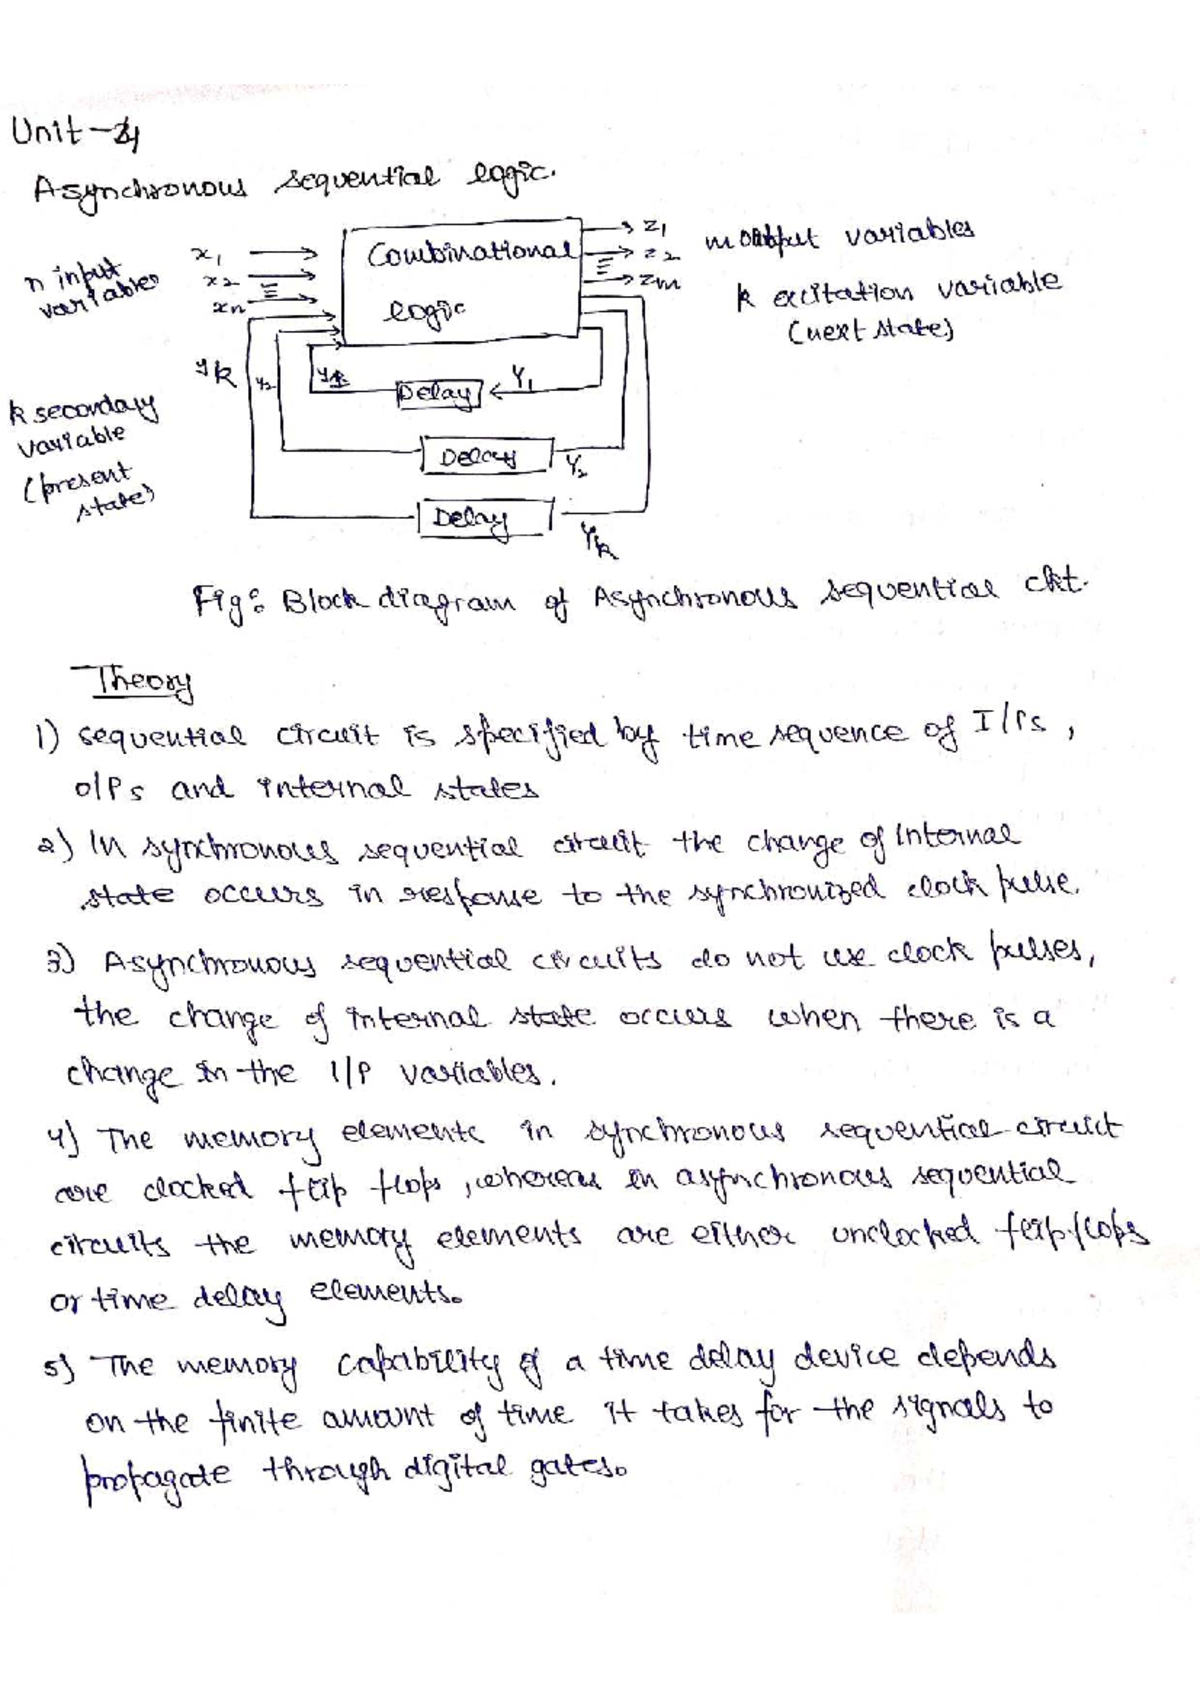 Unit-4
Asynchronous sequential logic.
n input
variables
x1
x2
xn
Combinational
logic
z1
z2
zm
m output variables
k excitation variable
(next state)
k secondary
variable
(present
state)
yk
y2
y1
Delay
Y1
Delay
Y2
Delay
Yk
Fig: Block diagram of Asynchronous sequential ckt.
Theory
1) sequential circuit is specified by time sequence of I/Ps,
O/Ps and internal states
2) In synchronous sequential circuit the change of internal
state occurs in response to the synchronized clock pulse.
3) Asynchronous sequential circuits do not use clock pulses,
the change of internal state occurs when there is a
change in the I/P variables.
4) The memory elements in synchronous sequential circuit
are clocked flip flops, whereas in asynchronous sequential
circuits the memory elements are either unclocked flip flops
or time delay elements.
5) The memory capability of a time delay device depends
on the finite amount of time it takes for the signals to
propagate through digital gates.